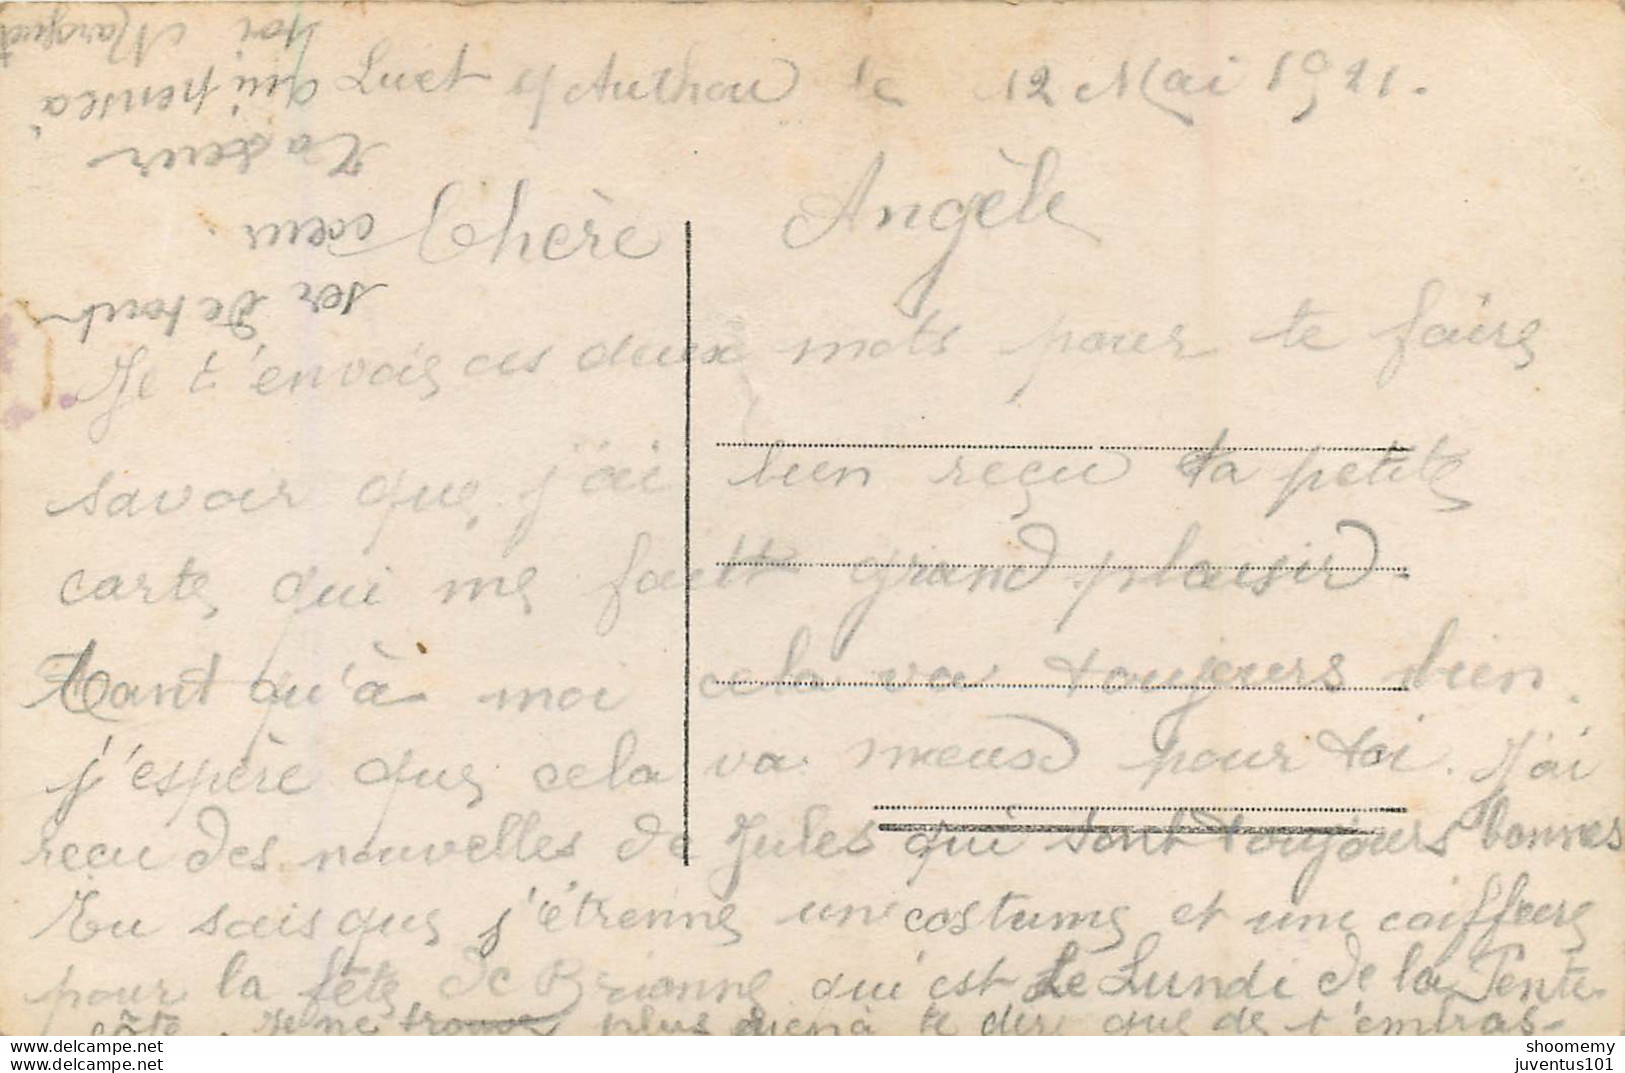 Lucet p/ Authou le 12 Mai 1921.
Chère Angèle
Je t'envoie ces deux mots pour te faire
savoir que j'ai bien reçu ta petite
carte qui me fait grand plaisir.
Tant qu'à moi cela va toujours bien.
j'espère que cela va mieux pour toi. J'ai
reçu des nouvelles de Jules qui sont toujours bonnes
Tu sais que j'étrenne un costume et une coiffure
pour la fête de Brionne qui est Le Lundi de la Pente
côte. Je ne trouve plus rien à te dire que de t'embras-
ser de tout
coeur.
Ta soeur
qui pense à
toi Marguerit
shoomemy
juventus101